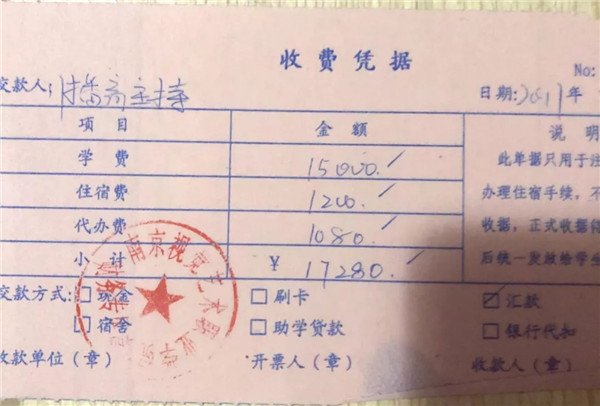 收费凭据
No:
交款人: 播音主持
日期: 年
项目 金额 说明
学费 15000.
住宿费 1200.
代办费 1080.
小计 ¥ 17280.
此单据只用于注
办理住宿手续，不
收据，正式收据待
后统一发放给学生
南京视觉艺术职业学院
交款方式: □现金 □刷卡 ☑汇款
□宿舍 □助学贷款 □银行代扣
收款单位（章） 开票人（章） 收款人（章）